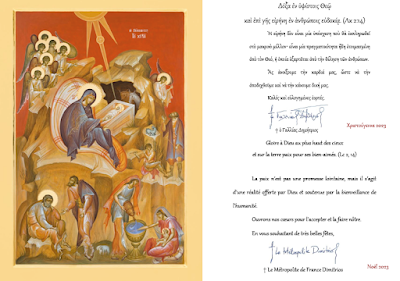 Δόξα ἐν ὑψίστοις Θεῷ
καὶ ἐπὶ γῆς εἰρήνη ἐν ἀνθρώποις εὐδοκία. (Λκ 2:14)
Ἡ εἰρήνη δὲν εἶναι μία ὑπόσχεση ποὺ θὰ ἐκπληρωθεῖ
στὸ μακρινὸ μέλλον· εἶναι μία πραγματικότητα ἤδη
ἀπὸ τὸν Θεό, ἡ ὁποία ἐξαρτᾶται ἀπὸ τὴν θέληση τῶν ἀνθρώπων.
Ἂς ἀνοίξουμε τὴν καρδιά μας, ὥστε νὰ τὴν
ἀποδεχθοῦμε καὶ νὰ τὴν κάνουμε δική μας.
Καλὲς καὶ εὐλογημένες ἑορτές.
† ὁ Γαλλίας Δημήτριος
Χριστούγεννα 2023
Gloire à Dieu au plus haut des cieux
et sur la terre paix pour ses bien aimés. (Lc 2, 14)
La paix n'est pas une promesse lointaine, mais il s'agit
d'une réalité offerte par Dieu et soutenue par la bienveillance de
l'humanité.
Ouvrons nos cœurs pour l'accepter et la faire nôtre.
En vous souhaitant de très belles fêtes,
† Le Métropolite Dimitrios
† Le Métropolite de France Dimitrios
Noël 2023